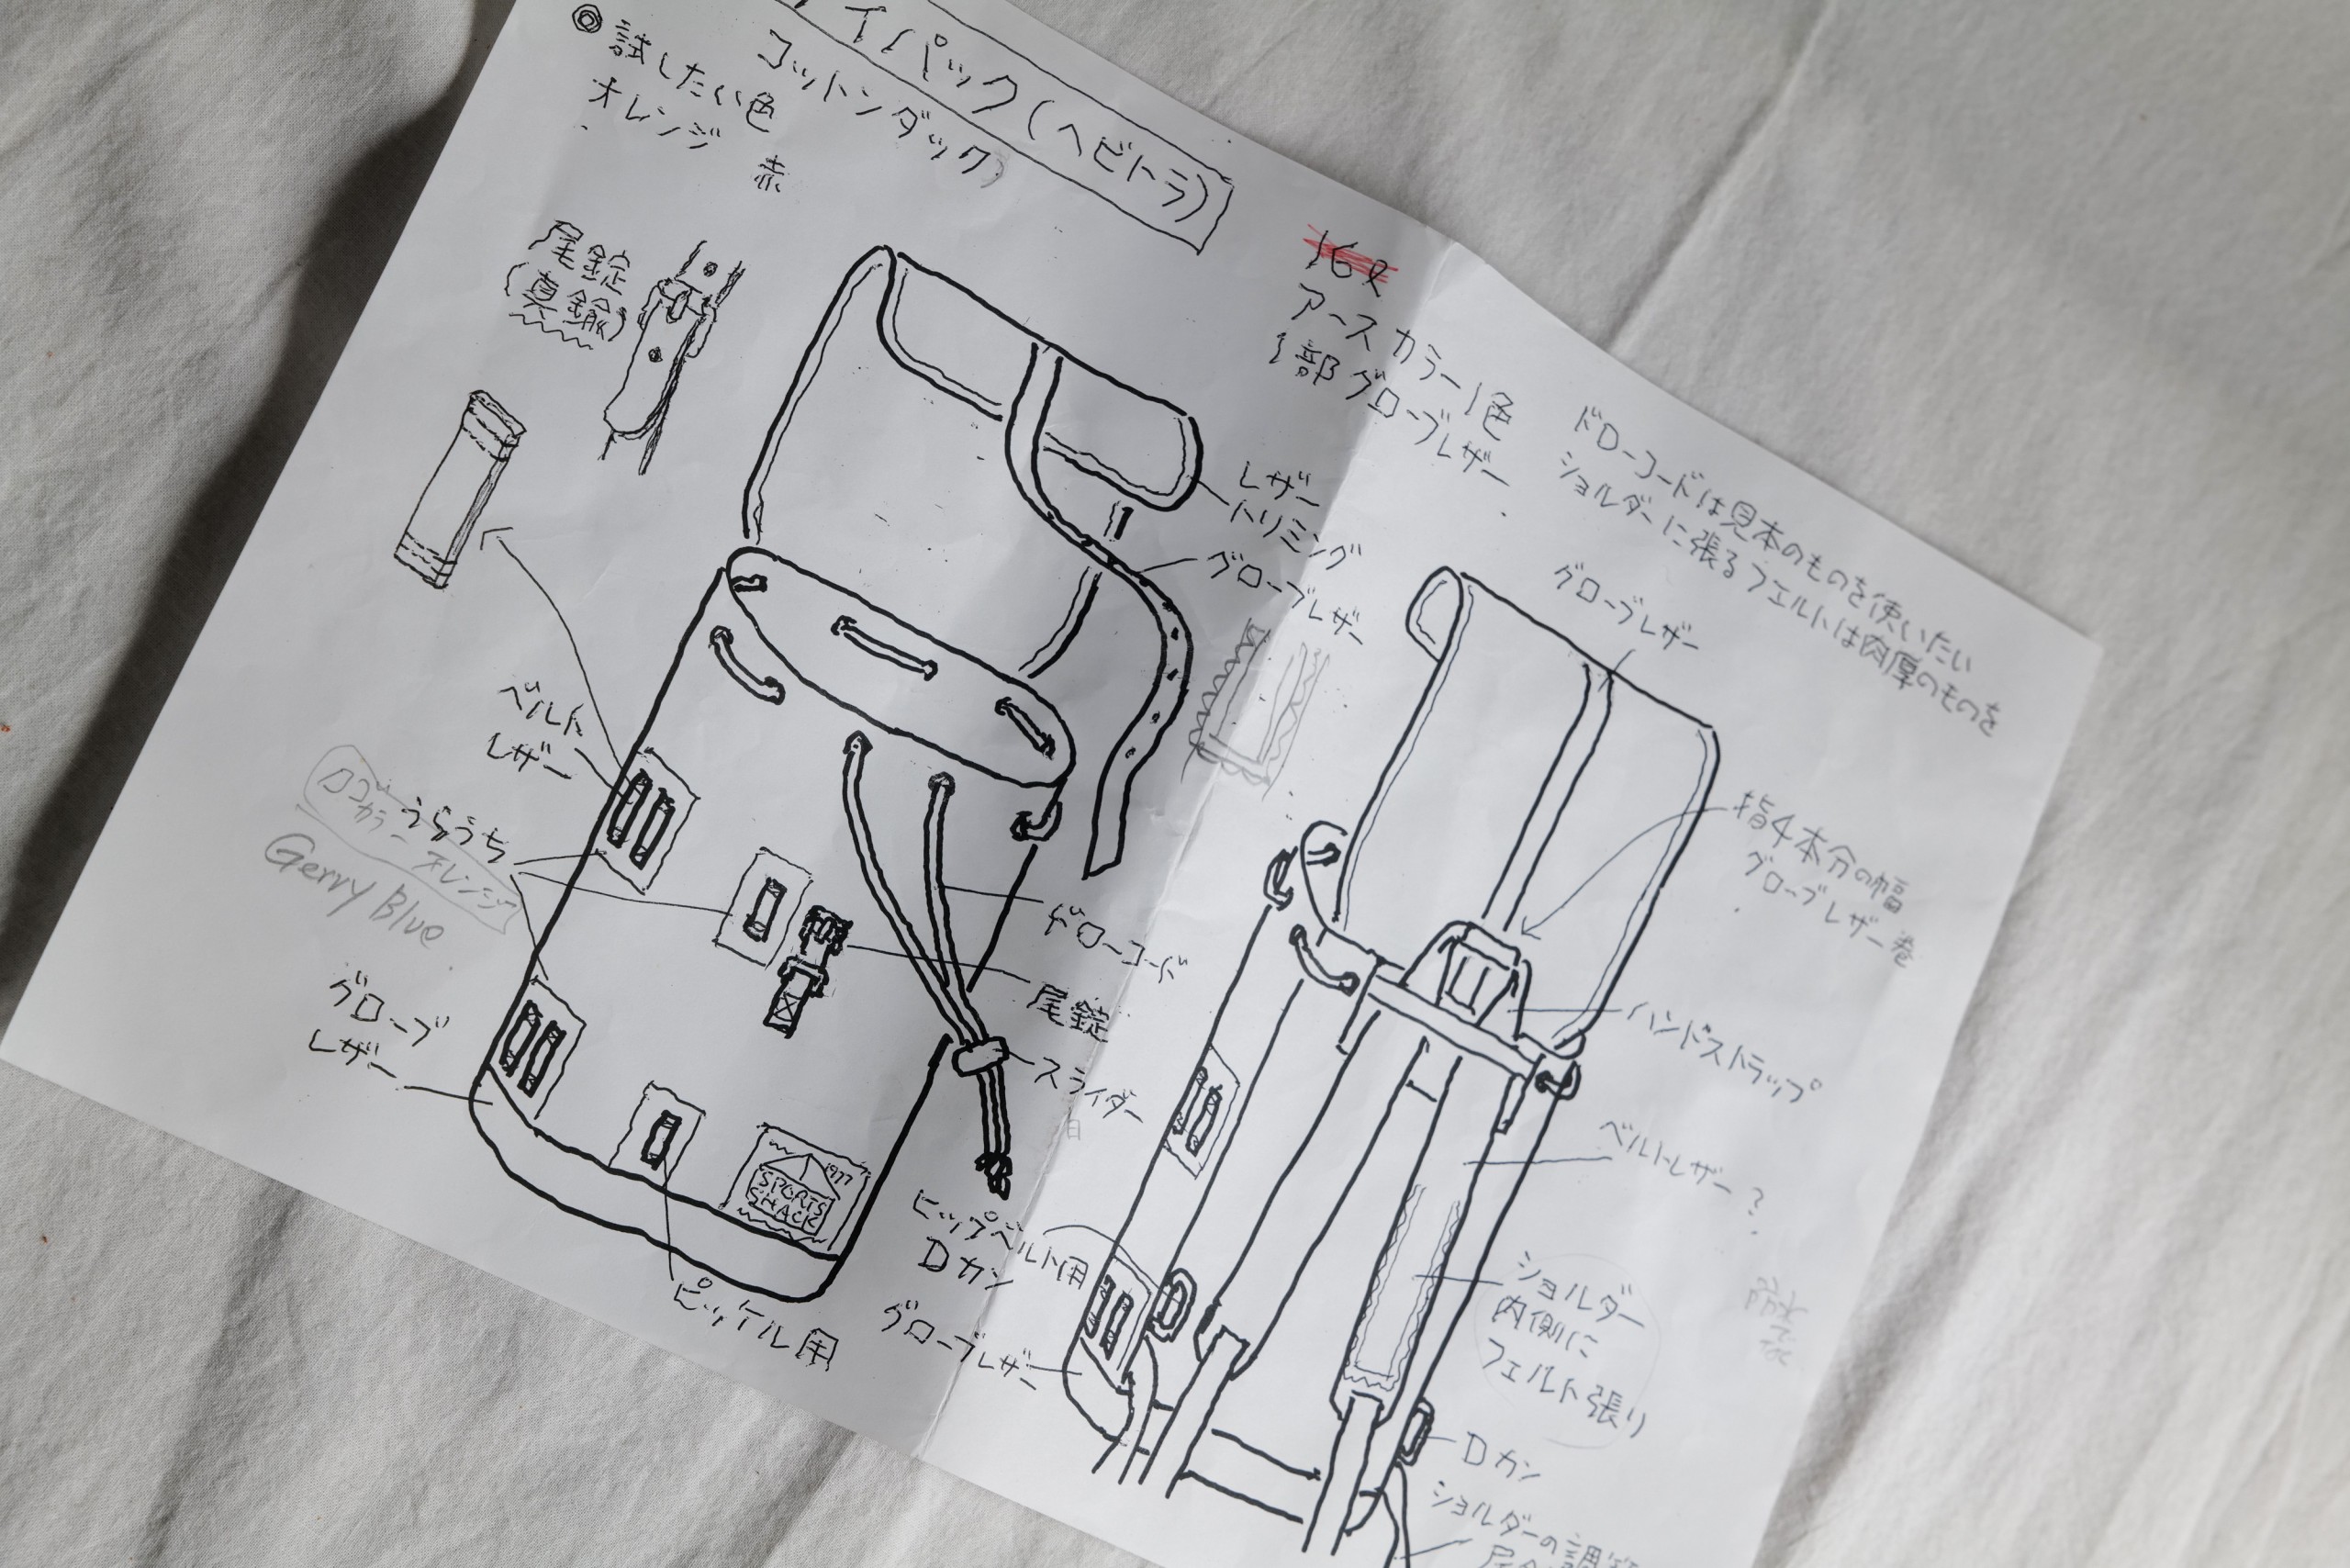 イパック(ヘビトラ)
コットンダック)
◎試したい色
オレンジ
赤
尾錠
(真鍮)
16ℓ
アースカラー1色
1部グローブレザー
ドローコードは見本のものを使いたい
ショルダーに張るフェルトは肉厚のものを
レザー
トリミング
グローブレザー
グローブレザー
ベルト
レザー
うらうち
ロゴ
カラー オレンジ
Gerry Blue
グローブ
レザー
ドローコード
尾錠
スライダー
1977
SPORTS
SHACK
ピッケル用
指4本分の幅
グローブレザー巻
ハンドストラップ
ベルトレザー?
ヒップベルト用
Dカン
グローブレザー
ショルダー
内側に
フェルト張り
Dカン
ショルダーの調